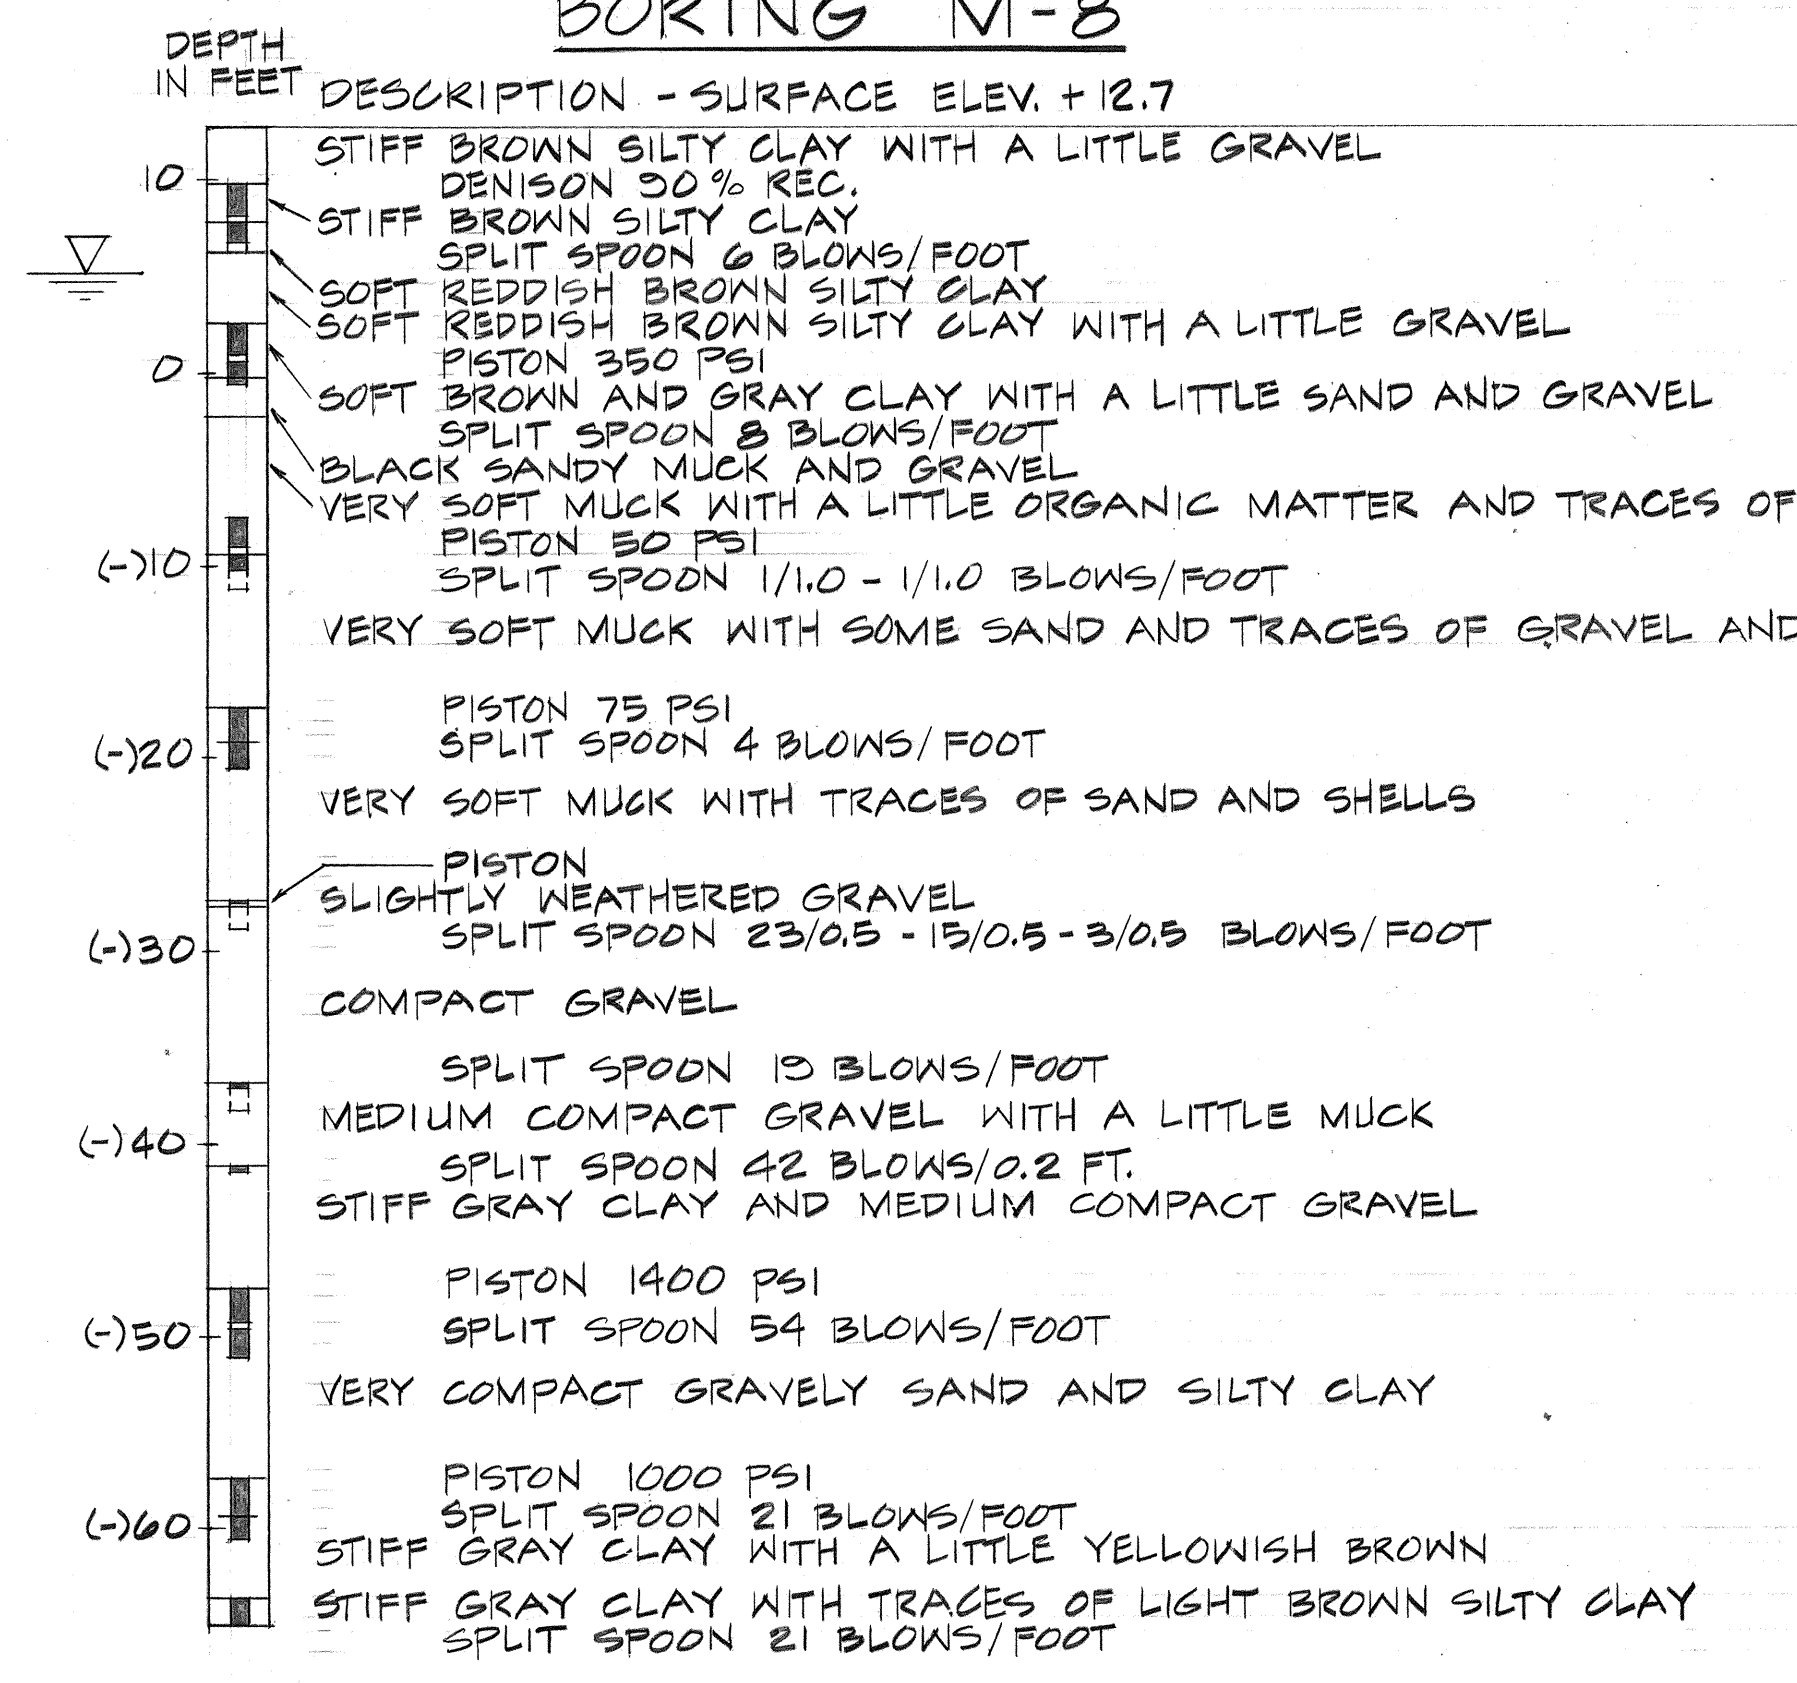 BORING M-8
DEPTH
IN FEET
DESCRIPTION - SURFACE ELEV. +12.7
STIFF BROWN SILTY CLAY WITH A LITTLE GRAVEL
10
DENISON 90% REC.
STIFF BROWN SILTY CLAY
SPLIT SPOON 6 BLOWS/FOOT
SOFT REDDISH BROWN SILTY CLAY
SOFT REDDISH BROWN SILTY CLAY WITH A LITTLE GRAVEL
PISTON 350 PSI
0
SOFT BROWN AND GRAY CLAY WITH A LITTLE SAND AND GRAVEL
SPLIT SPOON 8 BLOWS/FOOT
BLACK SANDY MUCK AND GRAVEL
VERY SOFT MUCK WITH A LITTLE ORGANIC MATTER AND TRACES OF
PISTON 50 PSI
(-)10
SPLIT SPOON 1/1.0 - 1/1.0 BLOWS/FOOT
VERY SOFT MUCK WITH SOME SAND AND TRACES OF GRAVEL AND
PISTON 75 PSI
SPLIT SPOON 4 BLOWS/FOOT
(-)20
VERY SOFT MUCK WITH TRACES OF SAND AND SHELLS
PISTON
SLIGHTLY WEATHERED GRAVEL
SPLIT SPOON 23/0.5 - 15/0.5 - 3/0.5 BLOWS/FOOT
(-)30
COMPACT GRAVEL
SPLIT SPOON 19 BLOWS/FOOT
MEDIUM COMPACT GRAVEL WITH A LITTLE MUCK
(-)40
SPLIT SPOON 42 BLOWS/0.2 FT.
STIFF GRAY CLAY AND MEDIUM COMPACT GRAVEL
PISTON 1400 PSI
(-)50
SPLIT SPOON 54 BLOWS/FOOT
VERY COMPACT GRAVELY SAND AND SILTY CLAY
PISTON 1000 PSI
SPLIT SPOON 21 BLOWS/FOOT
(-)60
STIFF GRAY CLAY WITH A LITTLE YELLOWISH BROWN
STIFF GRAY CLAY WITH TRACES OF LIGHT BROWN SILTY CLAY
SPLIT SPOON 21 BLOWS/FOOT